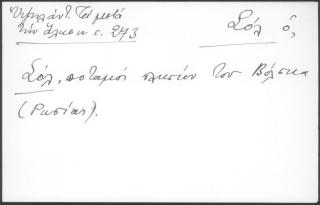 Ὑψηλάντ. Τὰ μετὰ
τὴν Ἅλωσιν σ. 273
Σόλ ὁ,
Σόλ, ποταμὸς πλησίον τοῦ Βόλγκα
(Ρωσίας).